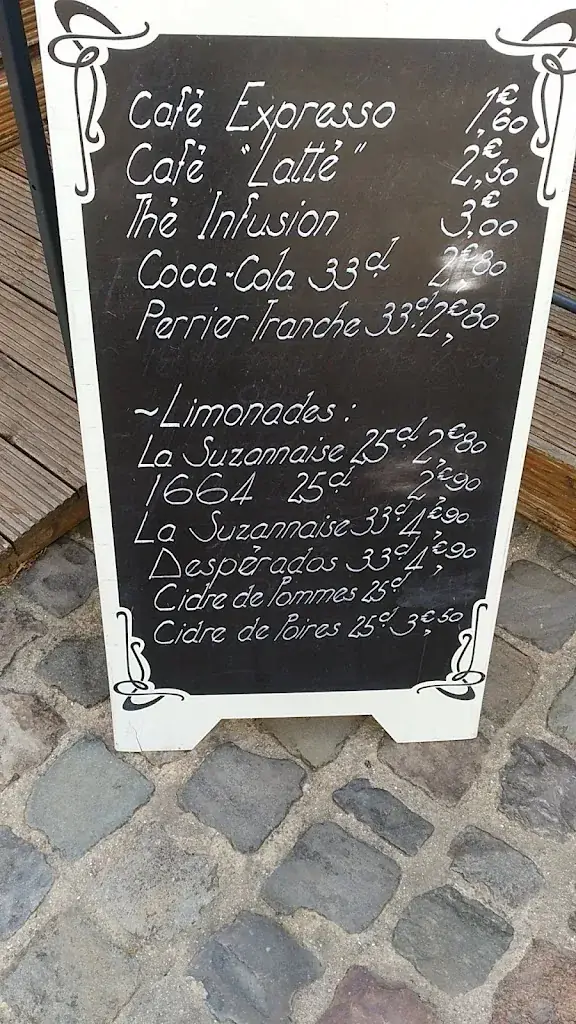 Cafè Expresso 1,€60
Cafè "Lattè" 2,€50
Thè Infusion 3,€00
Coca-Cola 33cl 2,€80
Perrier Tranche 33cl 2,€80
~Limonades:
La Suzannaise 25cl 2,€80
1664 25cl 2,€90
La Suzannaise 33cl 4,€90
Despérados 33cl 4,€90
Cidre de Pommes 25cl
Cidre de Poires 25cl 3,€50